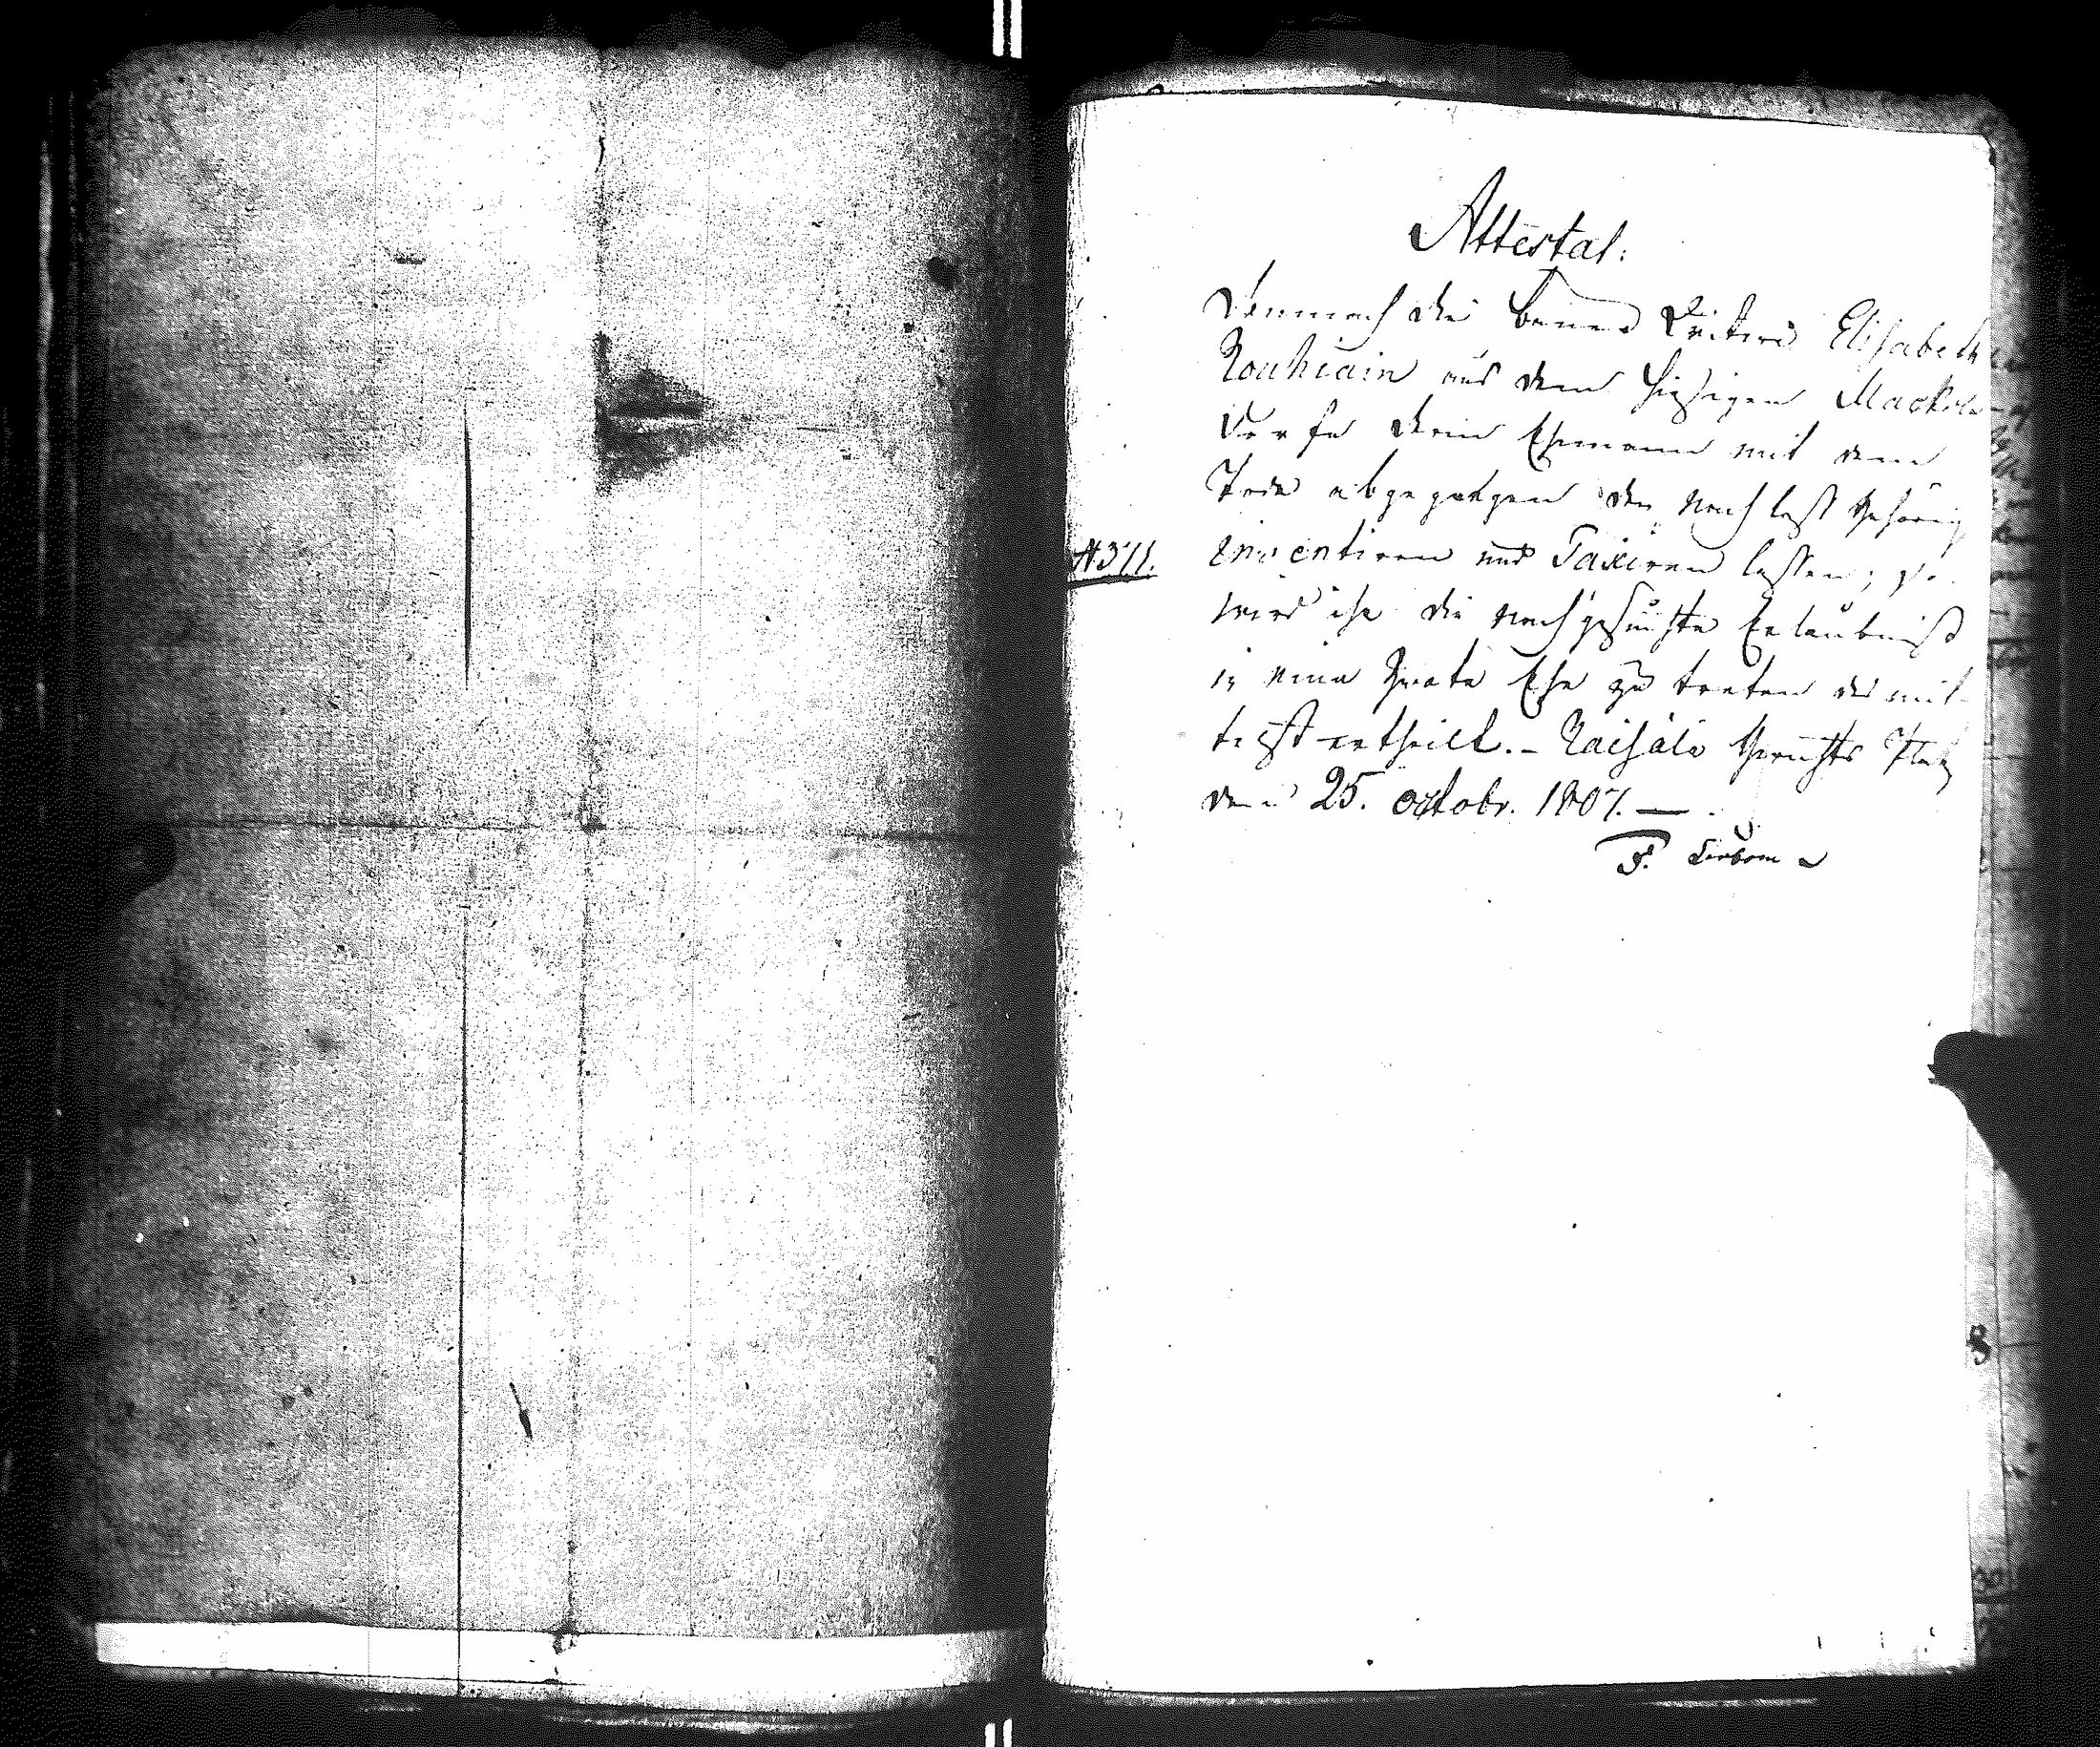 Attestat:
Demnach die Bauer Wittwe Elisabeth
Rouhiain aus dem hiesigen
Dorfe deren Ehemann mit dem
Tode abgegangen den Nachlaß gehörig
inventiren und Taxiren lassen; so
N 371.
wird ihr die nachgesuchte Erlaubniß
in eine zweite Ehe zu treten des mit-
telst ertheilt. – Raisala Gerichts Platz
den 25. octobr. 1807. —
F.